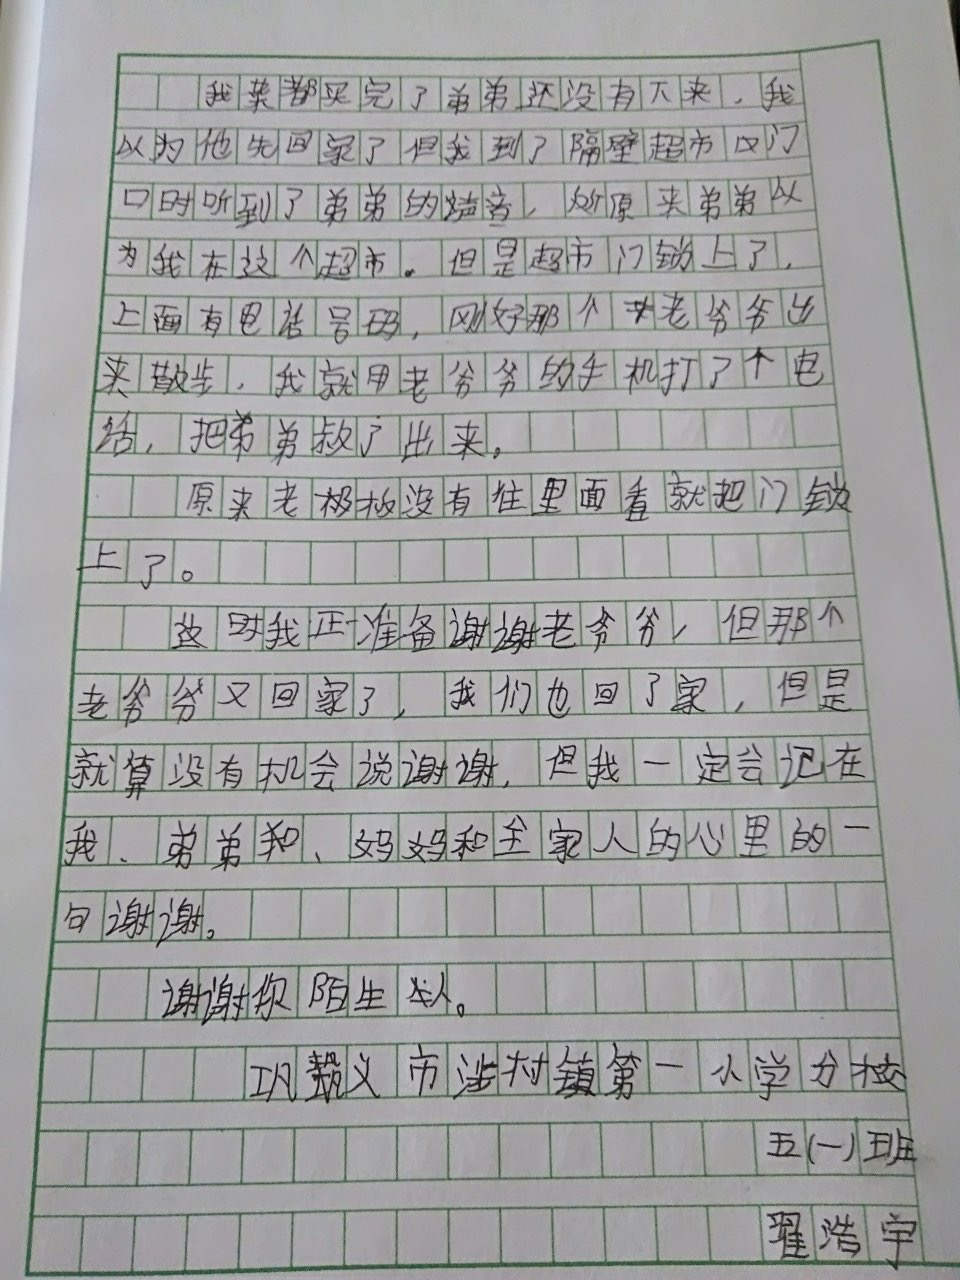 我菜都买完了弟弟还没有下来，我
以为他先回家了但我到了隔壁超市门
口时听到了弟弟的声音，原来弟弟以
为我在这个超市。但是超市门锁上了，
上面有电话号码，刚好那个老爷爷出
来散步，我就用老爷爷的手机打了个电
话，把弟弟救了出来。
原来老板没有往里面看就把门锁
上了。
这时我正准备谢谢老爷爷，但那个
老爷爷又回家了，我们也回了家，但是
就算没有机会说谢谢，但我一定会记在
我、弟弟和、妈妈和全家人的心里的一
句谢谢。
谢谢你陌生人。
巩义市涉村镇第一小学分校
五(一)班
翟浩宇